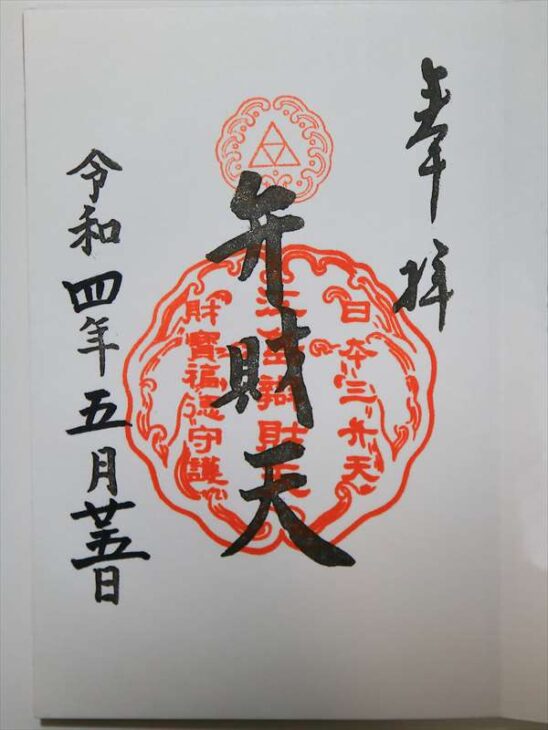 奉拝
弁財天
日本三弁天
江島辯財天
財寶福徳守護
令和四年五月廿五日